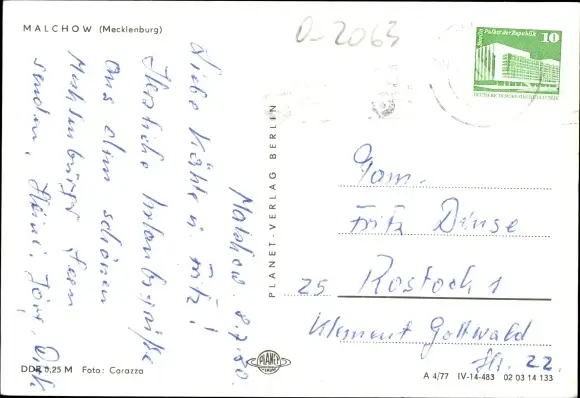 MALCHOW (Mecklenburg)
0-2063
Berlin Palast der Republik
10
DEUTSCHE DEMOKRATISCHE REPUBLIK
Malchow, 8.7.80
Liebe Käthe u. Fritz!
Herzliche Urlaubsgrüße
aus dem schönen
Mecklenburger
senden Heini, Jörg, Dirk
PLANET-VERLAG BERLIN
Fam.
Fritz Dinse
25 Rostock 1
Klement Gottwald
Str. 22.
DDR 0,25 M Foto: Corazza
PLANET
A 4/77 IV-14-483 02 03 14 133